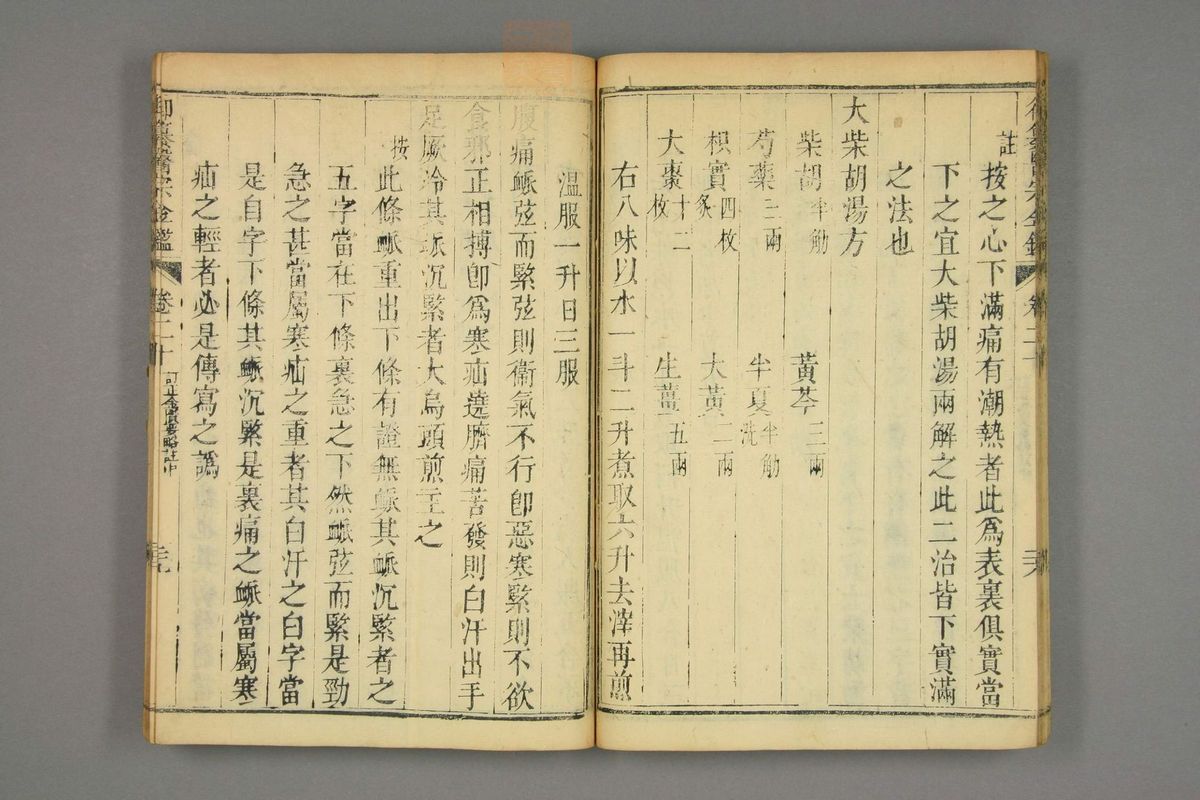 御纂醫宗金鑑 卷二十
註
按之心下滿痛有潮熱者此爲表裏俱實當
下之宜大柴胡湯兩解之此二治皆下實滿
之法也
大柴胡湯方
柴胡半觔 黃芩三兩
芍藥三兩 半夏半觔洗
枳實四枚炙 大黃二兩
大棗十二枚 生薑五兩
右八味以水一斗二升煮取六升去滓再煎
溫服一升日三服
腹痛䘑弦而緊弦則衞氣不行卽惡寒緊則不欲
食邪正相搏卽爲寒疝遶臍痛苦發則白汗出手
足厥冷其䘑沉緊者大烏頭煎主之
按
此條䘑重出下條有證無䘑其䘑沉緊者之
五字當在下條裏急之下然䘑弦而緊是勁
急之甚當屬寒疝之重者其白汗之白字當
是自字下條其䘑沉緊是裏痛之䘑當屬寒
疝之輕者必是傳寫之譌
御纂醫宗金鑑 卷二十 訂正金匱要略註中